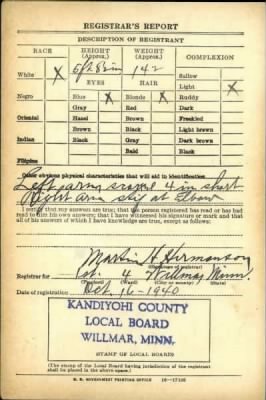 REGISTRAR'S REPORT
DESCRIPTION OF REGISTRANT
RACE HEIGHT (Approx.) WEIGHT (Approx.) COMPLEXION
White X 5 ft 8 in 142 Sallow
EYES HAIR Light X
Negro Blue X Blonde X Ruddy
Gray Red Dark
Oriental Hazel Brown Freckled
Brown Black Light brown
Indian Black Gray Dark brown
Bald Black
Filipino
Other obvious physical characteristics that will aid in identification
Left arm 4 in short
Right arm at Elbow
I certify that my answers are true; that the person registered has read or has had
read to him his own answers; that I have witnessed his signature or mark and that
all of his answers of which I have knowledge are true, except as follows:
Martin H. Hermanson
(Signature of registrar)
Registrar for Pct. 4 Willmar Minn.
(Precinct) (Ward) (City or county) (State)
Date of registration Oct. 16 - 1940
KANDIYOHI COUNTY
LOCAL BOARD
WILLMAR, MINN.
(STAMP OF LOCAL BOARD)
(The stamp of the Local Board having jurisdiction of the registrant
shall be placed in the above space.)
U. S. GOVERNMENT PRINTING OFFICE 16-17105